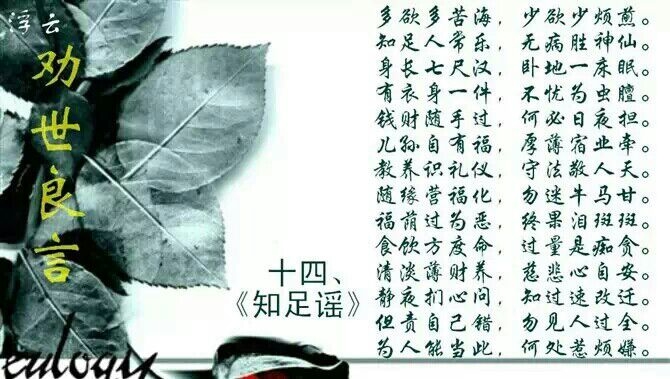 浮云
劝世良言
多欲多苦海，少欲少烦煎。
知足人常乐，无病胜神仙。
身长七尺汉，卧地一床眠。
有衣身一件，不忧为虫膻。
钱财随手过，何必日夜担。
儿孙自有福，厚薄宿业牵。
教养识礼仪，守法敬人天。
随缘营福化，勿迷牛马甘。
福荫过为恶，终果泪斑斑。
食饮方度命，过量是痴贪。
清淡薄财养，慈悲心自安。
静夜扪心问，知过速改迁。
但责自己错，勿见人过全。
为人能当此，何处惹烦嫌。
十四、
《知足谣》
eulogix